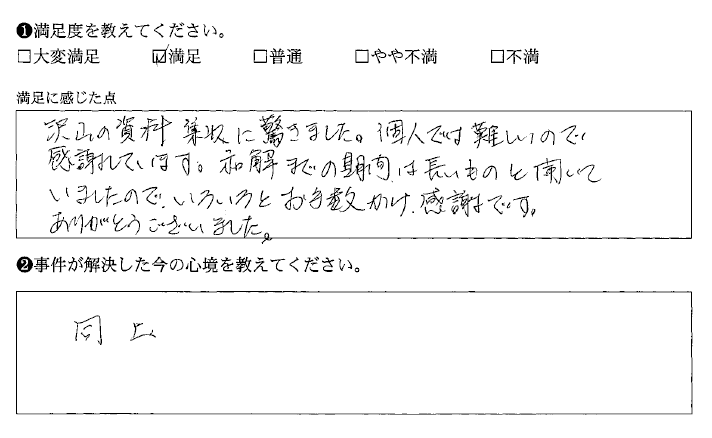 ❶満足度を教えてください。
□大変満足 ☑満足 □普通 □やや不満 □不満
満足に感じた点
沢山の資料 集収に驚きました。個人では難しいので
感謝しています。和解までの期間は長いものと聞いて
いましたので、いろいろとお手数かけ、感謝です。
ありがとうございました。
❷事件が解決した今の心境を教えてください。
同 上